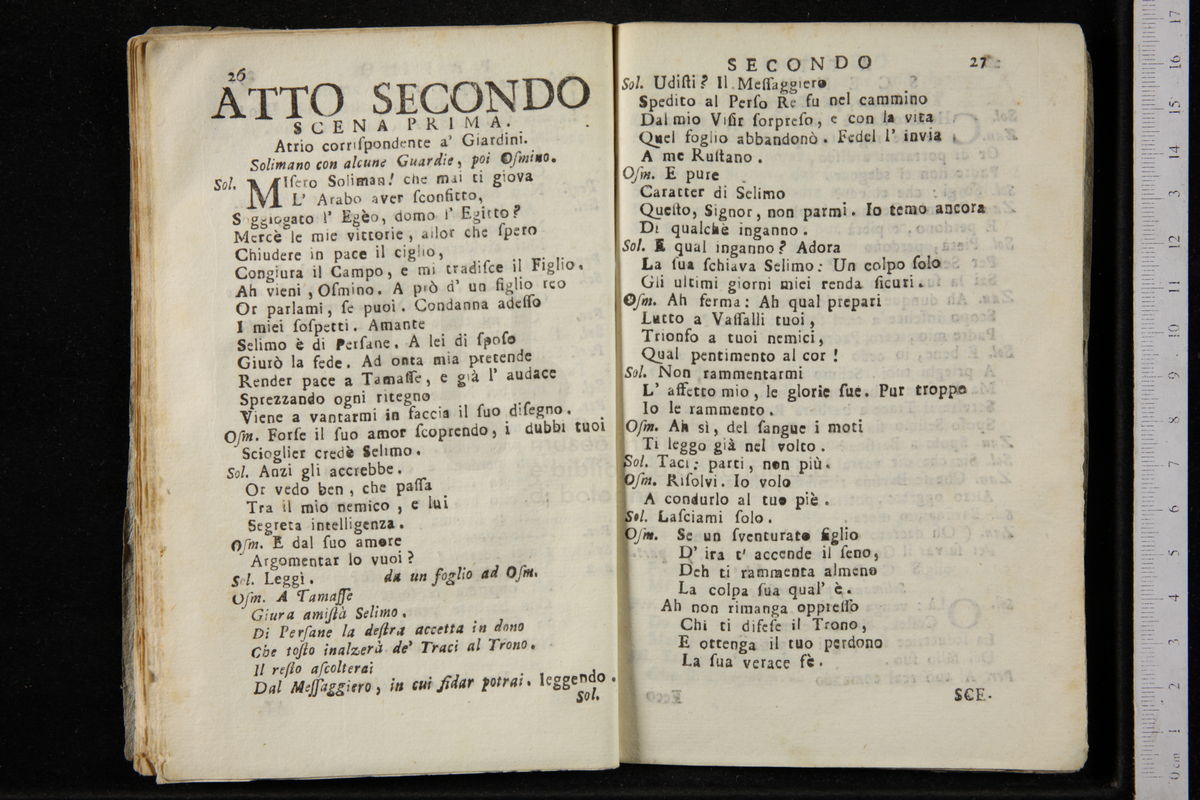 26
ATTO SECONDO
SCENA PRIMA.
Atrio corriſpondente a' Giardini.
Solimano con alcune Guardie, poi Oſmino.
Sol. MIſero Soliman! che mai ti giova
L' Arabo aver ſconfitto,
Soggiogato l' Egèo, domo l' Egitto?
Mercè le mie vittorie, allor che ſpero
Chiudere in pace il ciglio,
Congiura il Campo, e mi tradiſce il Figlio.
Ah vieni, Oſmino. A piò d' un figlio reo
Or parlami, ſe puoi. Condanna adeſſo
I miei ſoſpetti. Amante
Selimo è di Perſane. A lei di ſpoſo
Giurò la fede. Ad onta mia pretende
Render pace a Tamaſſe, e già l' audace
Sprezzando ogni ritegno
Viene a vantarmi in faccia il ſuo diſegno.
Oſm. Forſe il ſuo amor ſcoprendo, i dubbi tuoi
Scioglier credè Selimo.
Sol. Anzi gli accrebbe.
Or vedo ben, che paſſa
Tra il mio nemico, e lui
Segreta intelligenza.
Oſm. E dal ſuo amore
Argomentar lo vuoi?
Sol. Leggi. da un foglio ad Oſm.
Oſm. A Tamaſſe
Giura amiſtà Selimo.
Di Perſane la deſtra accetta in dono
Che toſto inalzerà de' Traci al Trono.
Il reſto aſcolterai
Dal Meſſaggiero, in cui fidar potrai. leggendo.
Sol.
SECONDO 27
Sol. Udiſti? Il Meſſaggiero
Spedito al Perſo Re fu nel cammino
Dal mio Viſir ſorpreſo, e con la vita
Quel foglio abbandonò. Fedel l' invia
A me Ruſtano.
Oſm. E pure
Caratter di Selimo
Queſto, Signor, non parmi. Io temo ancora
Di qualche inganno.
Sol. E qual inganno? Adora
La ſua ſchiava Selimo: Un colpo ſolo
Gli ultimi giorni miei renda ſicuri.
Oſm. Ah ferma: Ah qual prepari
Lutto a Vaſſalli tuoi,
Trionfo a tuoi nemici,
Qual pentimento al cor!
Sol. Non rammentarmi
L' affetto mio, le glorie ſue. Pur troppo
Io le rammento.
Oſm. Ah sì, del ſangue i moti
Ti leggo già nel volto.
Sol. Taci: parti, non più.
Oſm. Riſolvi. Io volo
A condurlo al tuo piè.
Sol. Laſciami ſolo.
Oſm. Se un ſventurato figlio
D' ira t' accende il ſeno,
Deh ti rammenta almeno
La colpa ſua qual' è.
Ah non rimanga oppreſſo
Chi ti difeſe il Trono,
E ottenga il tuo perdono
La ſua verace fè.
SCE-